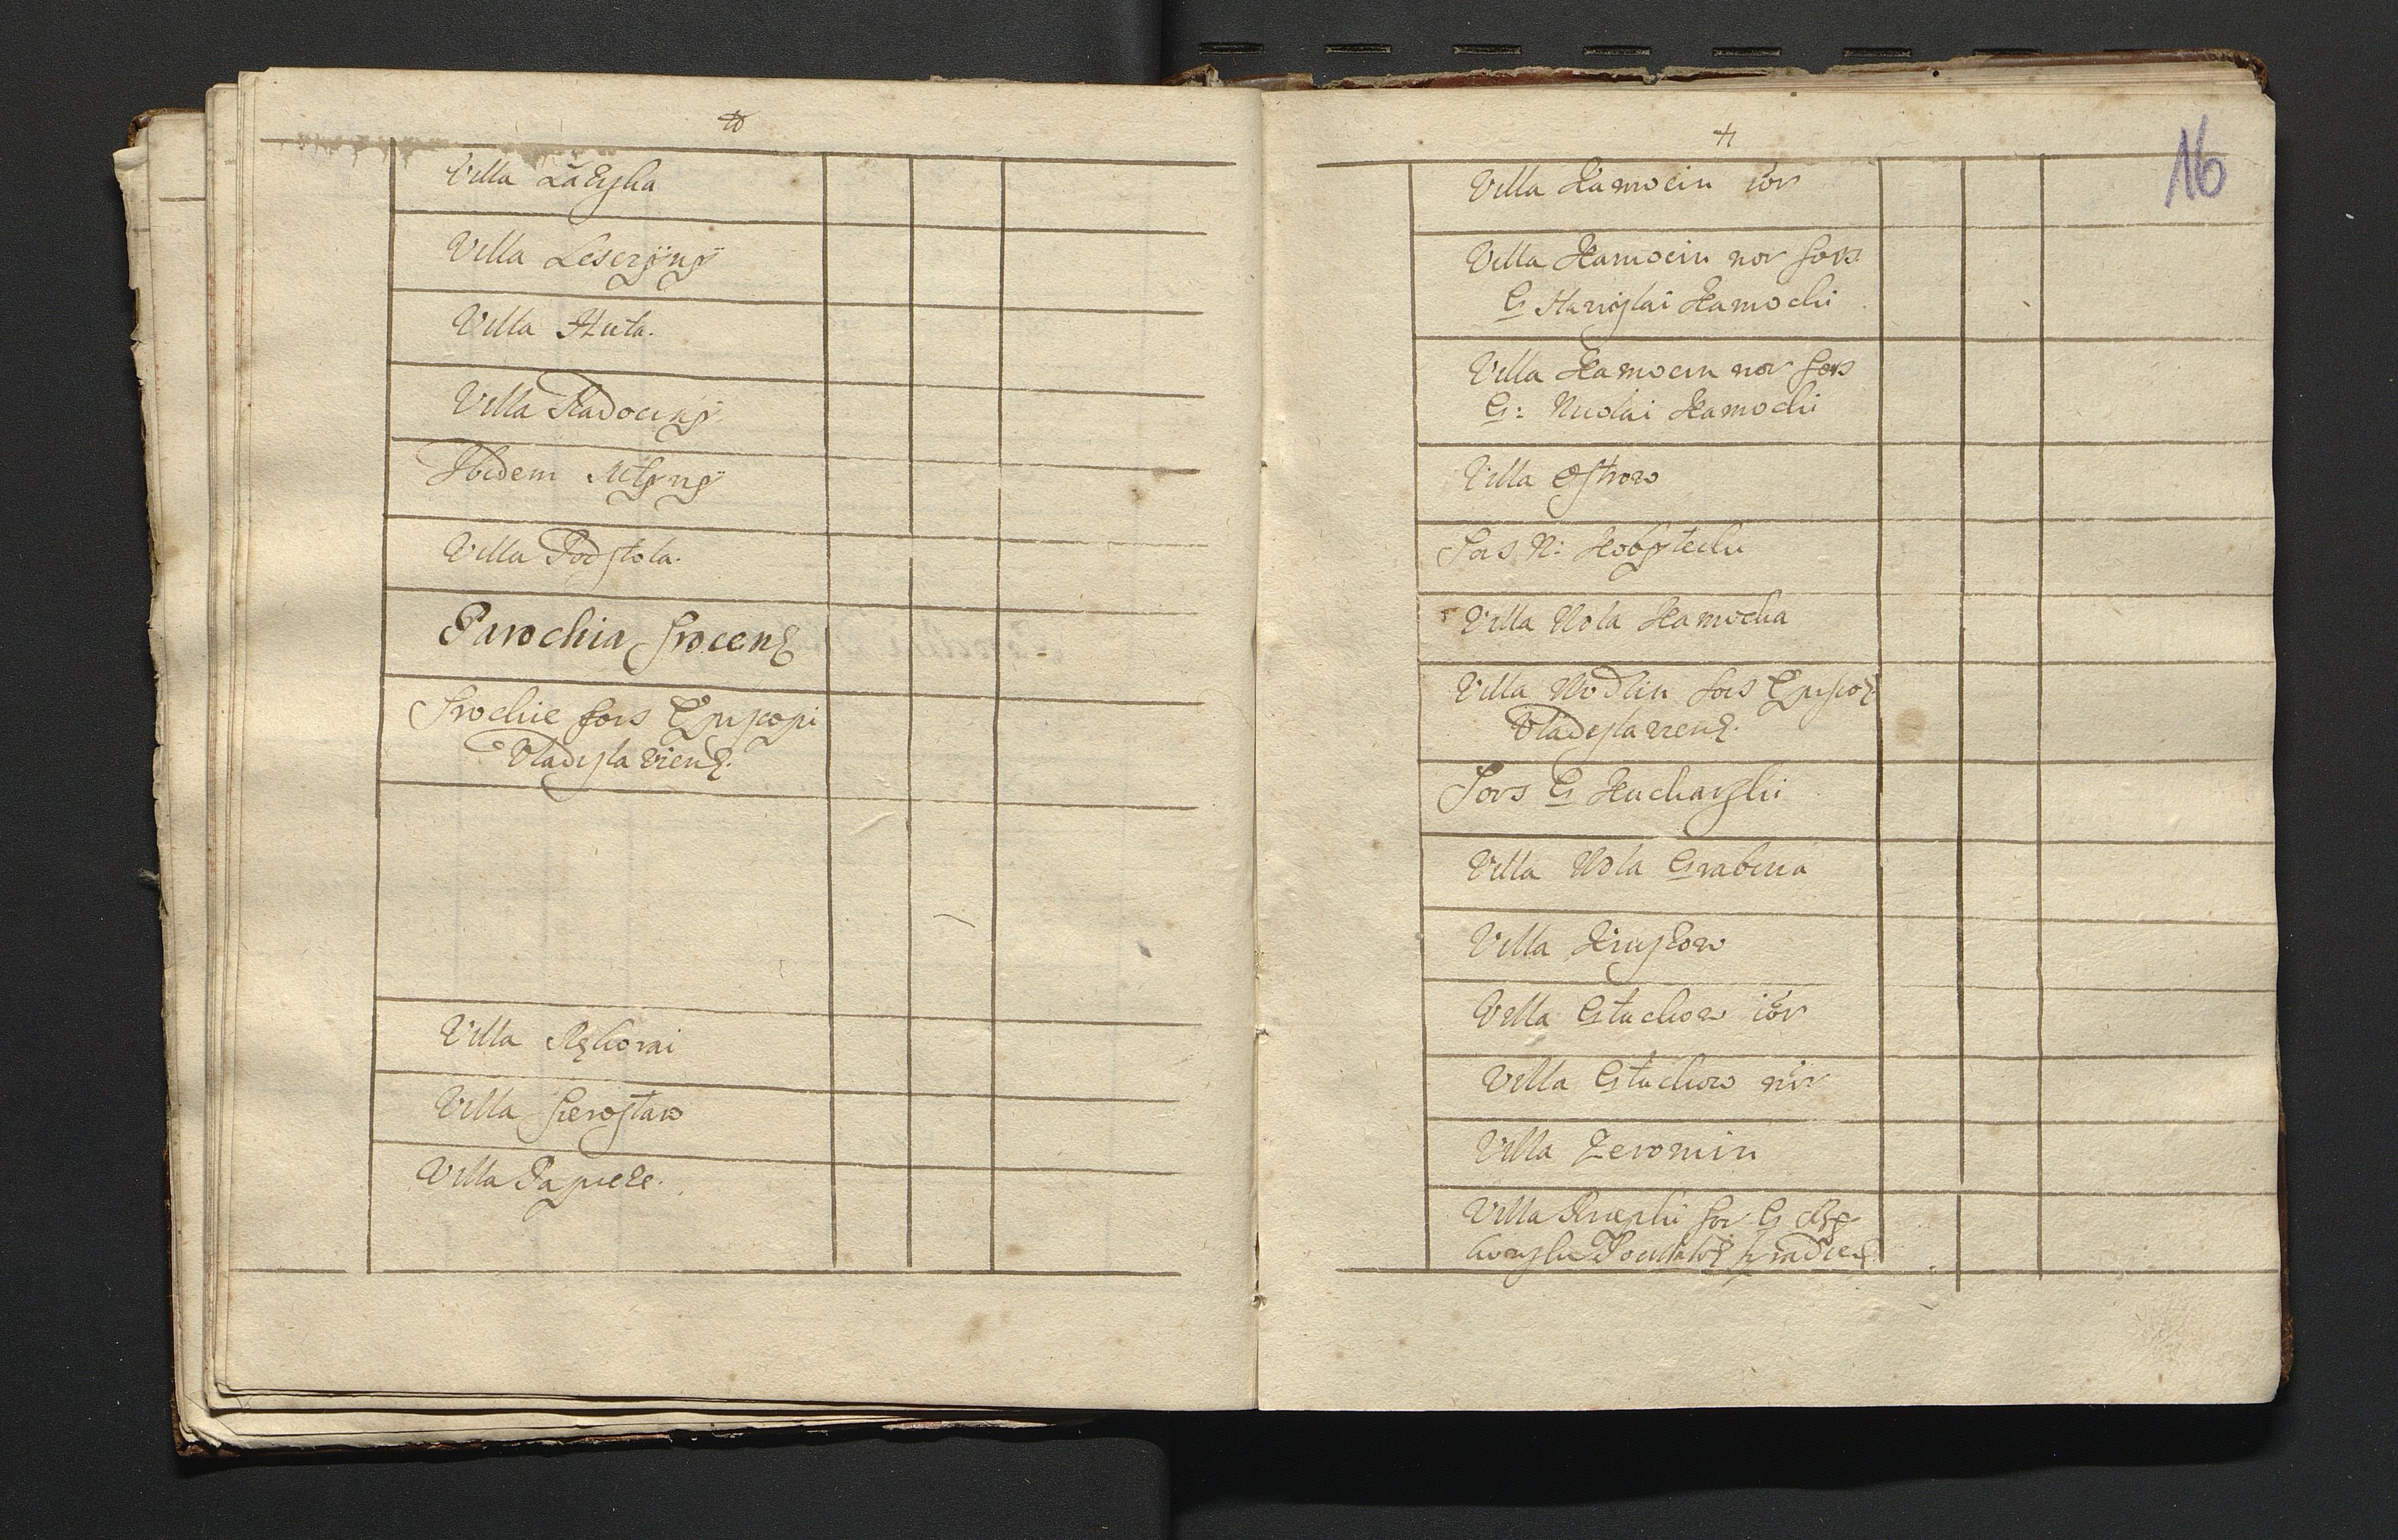 Villa Łączka
Villa Lesczyny
Villa Huta.
Villa Radociny
Ibidem Młyny
Villa Podstola.
Parochia Srocenʒ
Srockie sors Episcopi
Vladislavienʒ.
Villa Rękorai
Villa Sierosław
Villa Papieże.
16
Villa Kamocin ior
Villa Kamocin nor sors
G Stanislai Kamocki
Villa Kamocin nor sors
G: Nicolai Kamocki
Villa Ostrow
Sors N: Kobyłecki
Villa Wola Kamocka
Villa Wodzin sors Episcoʒ
Vladislavienʒ.
Sors G Kucharski
Villa Wola Grabina
Villa Kruszow
Villa Głuchow ior
Villa Głuchow nor
Villa Żeromin
Villa Rzepki sor G